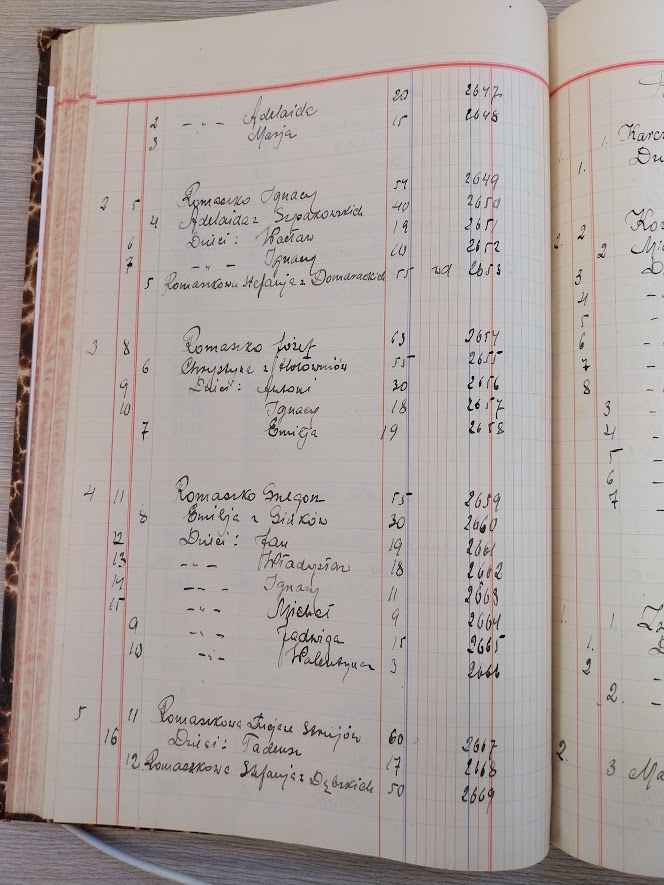 2 -„- Adelaida 20 2647
3 Marja 15 2648
2 5 Romaszko Ignacy 54 2649
4 Adelaida z Szpakowskich 40 2650
6 Dzieci: Wacław 19 2651
7 -„- Ignacy 10 2652
5 Romaszkowa Stefanja z Domarackich 55 wd 2653
3 8 Romaszko Józef 63 2654
6 Chrystyna z 55 2655
9 Dzieci: Antoni 20 2656
10 Ignacy 18 2657
7 Emilja 19 2658
4 11 Romaszko Gregorz 55 2659
8 Emilja z 30 2660
12 Dzieci: Jan 19 2661
13 -„- Władysław 18 2662
14 -„- Ignacy 11 2663
15 -„- Michał 9 2664
9 -„- Jadwiga 15 2665
10 -„- Walentyna 3 2666
5 11 Romaszkowa 60 2667
16 Dzieci: Tadeusz 17 2668
12 Romaszkowa Stefanja z Dąbskich 50 2669